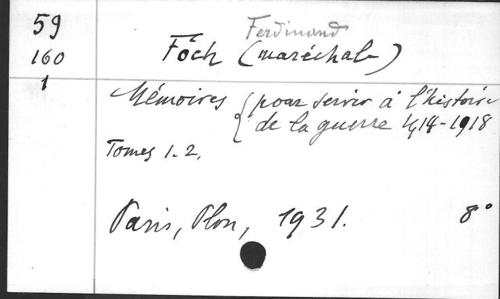 59
160
1
Ferdinand
Foch (maréchal)
Mémoires { pour servir à l'histoire
de la guerre 1914-1918
Tomes 1-2.
Paris, Plon, 1931. 8°